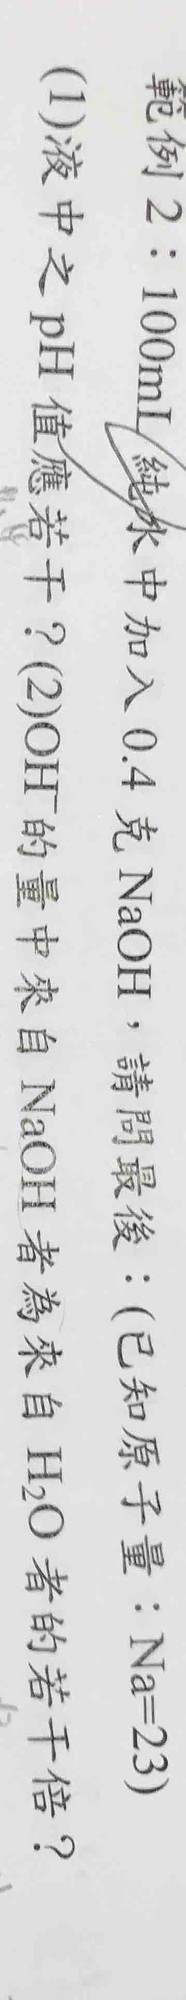 範例 2：100mL 純水中加入 0.4 克 NaOH，請問最後：(已知原子量：Na=23)
(1)液中之 pH 值應若干？(2)OH⁻的量中來自 NaOH 者為來自 H₂O 者的若干倍？